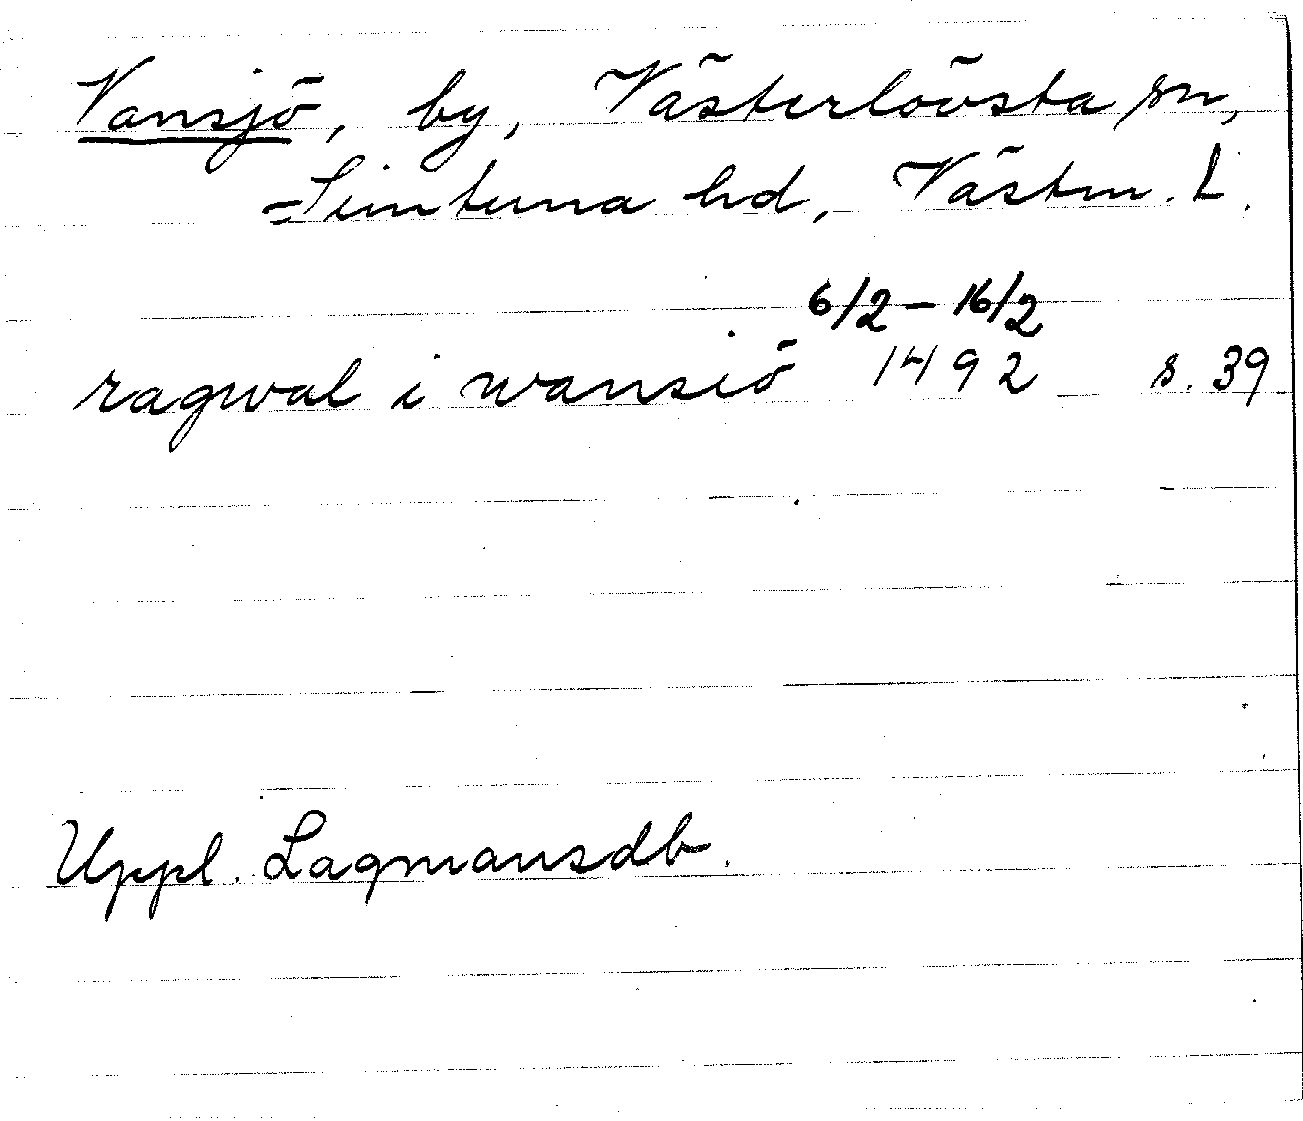 Vansjö, by, Västerlövsta sn,
Simtuna hd, Västm. L.
6/2 – 16/2
ragwal i wansiö 1492 s. 39
Uppl. Lagmansdb.